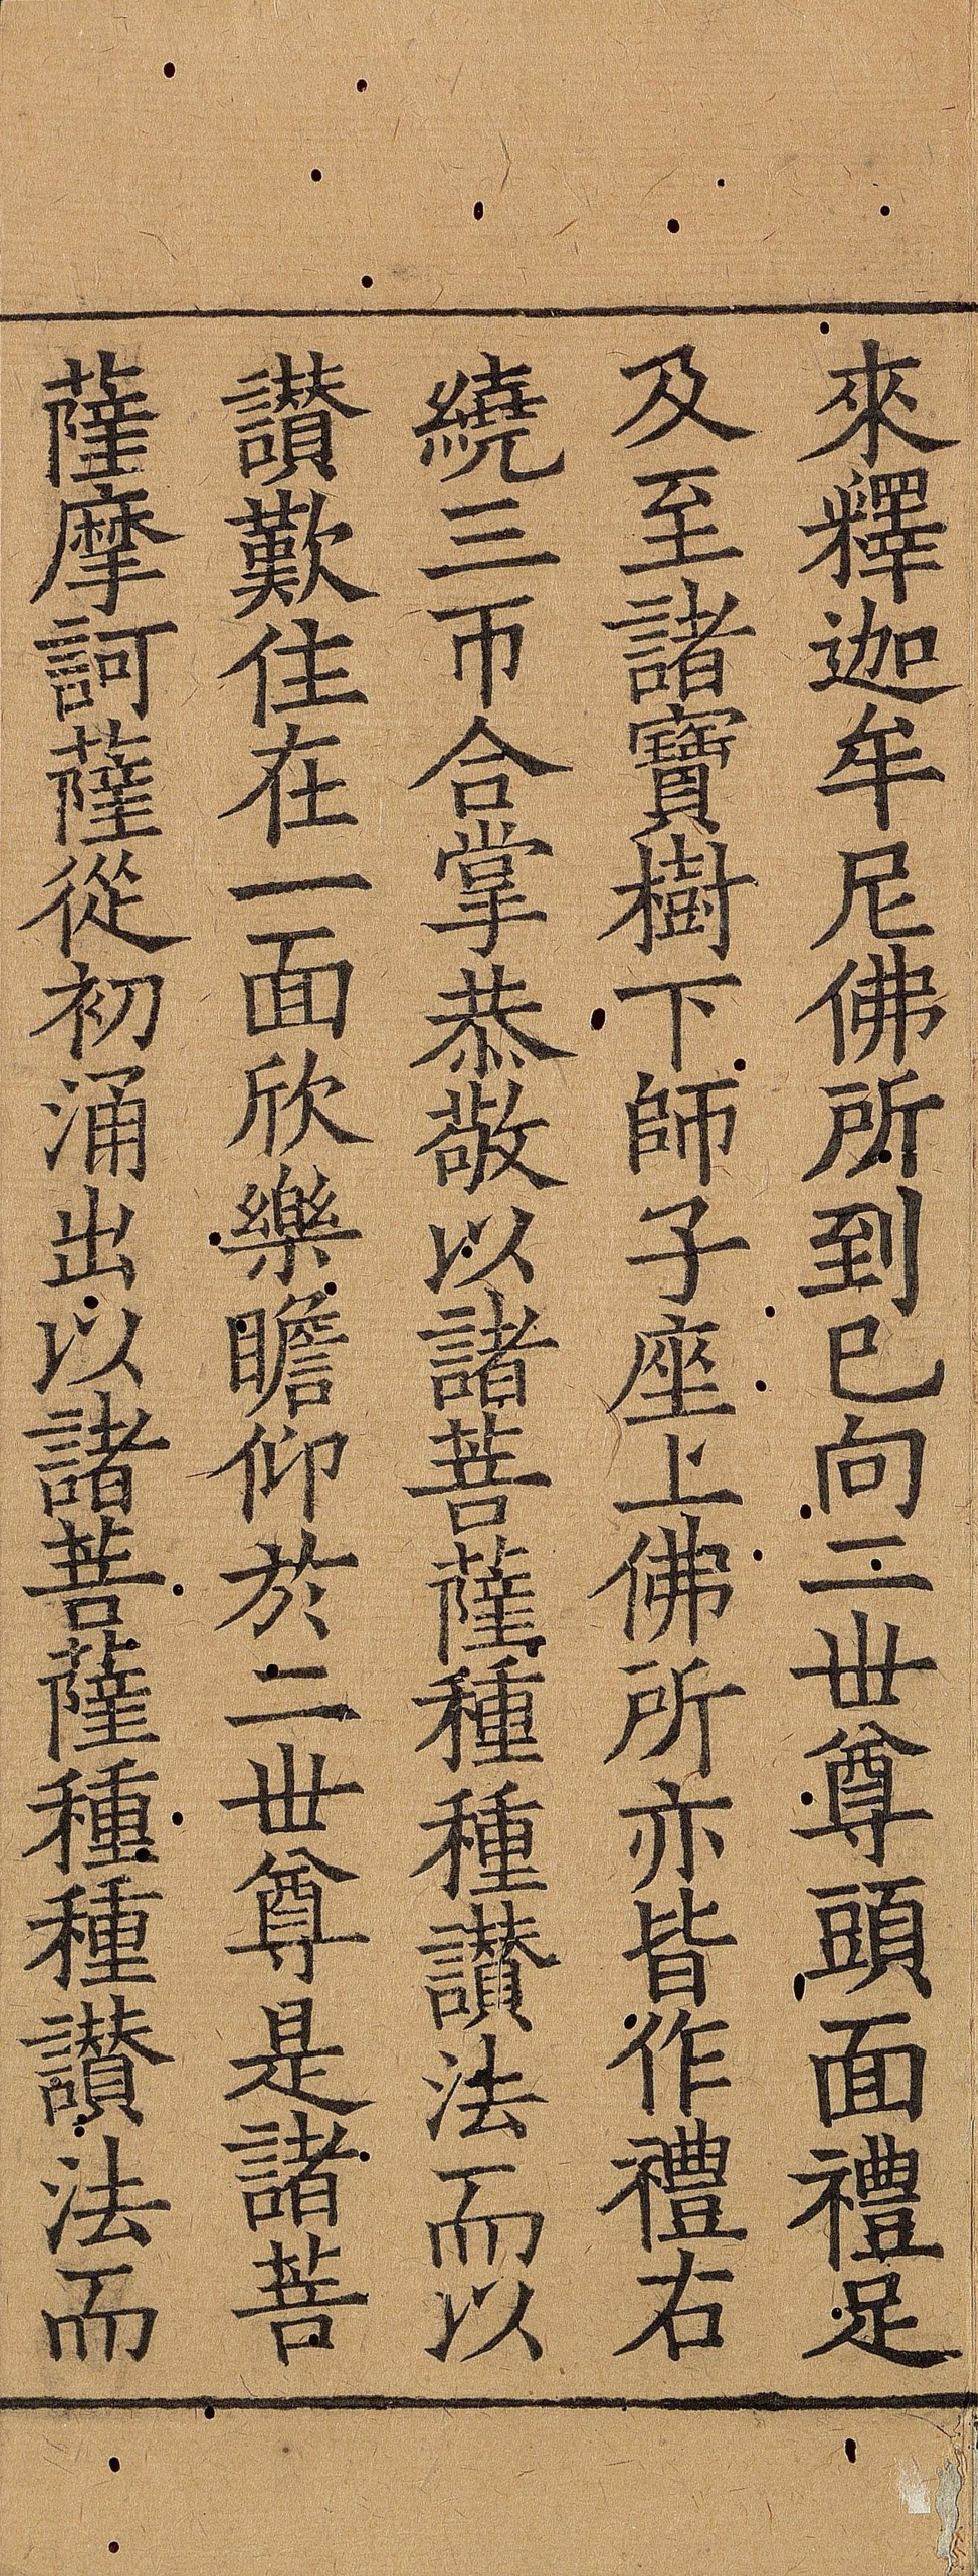 來釋迦牟尼佛所到已向二世尊頭面禮足
及至諸寶樹下師子座上佛所亦皆作禮右
繞三帀合掌恭敬以諸菩薩種種讃法而以
讃歎住在一面欣樂瞻仰於二世尊是諸菩
薩摩訶薩從初涌出以諸菩薩種種讃法而